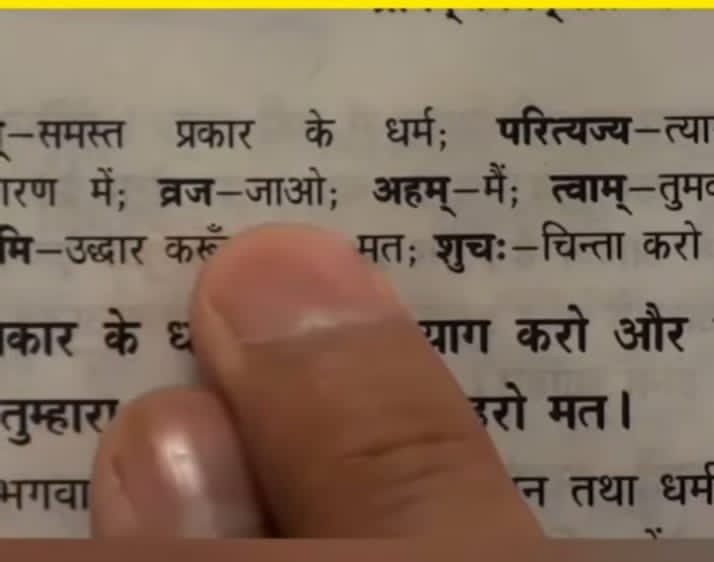 –समस्त प्रकार के धर्म; परित्यज्य–त्या
में; व्रज–जाओ; अहम्–मैं; त्वाम्–तुम
मि–उद्धार करूँ मत; शुचः–चिन्ता करो
कार के ध याग करो और
तुम्हारा डरो मत।
भगवा न तथा धर्म